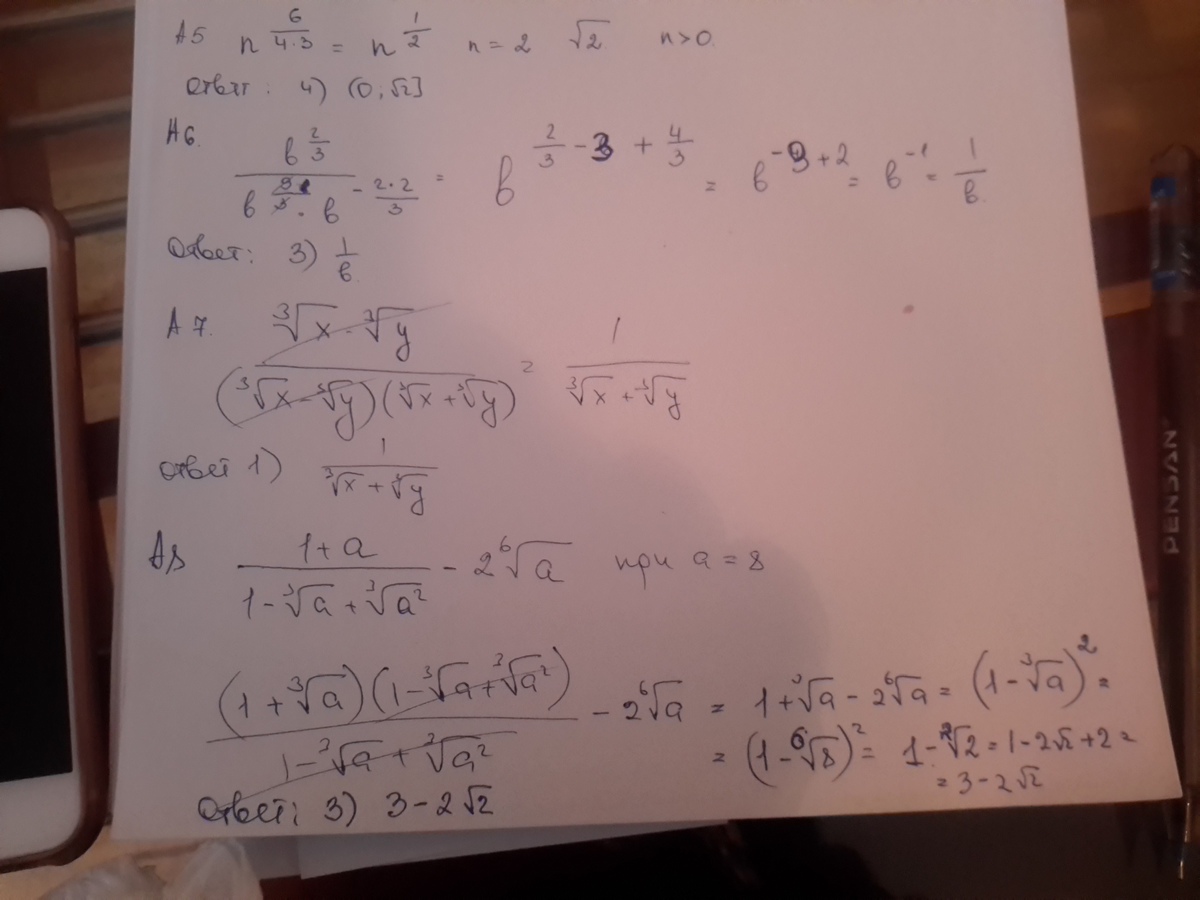 A5 n^(6/(4·3)) = n^(1/2) n = 2 √2 n>0.
Ответ: 4) (0; √2]
A6. b^(2/3) / (b^(9/3) · b^(-(2·2)/3)) = b^(2/3 - 3 + 4/3) = b^(-3+2) = b^(-1) = 1/b.
Ответ: 3) 1/b.
A7. (∛x - ∛y) / ((∛x - ∛y)(∛x + ∛y)) = 1/(∛x + ∛y)
Ответ 1) 1/(∛x + ∛y)
A8 (1+a)/(1-∛a+∛a²) - 2⁶√a при a = 8
((1+∛a)(1-∛a+∛a²))/(1-∛a+∛a²) - 2⁶√a = 1+∛a - 2⁶√a = (1-∛a)² =
= (1-⁶√8)² = 1-2√2 = 1-2√2+2 =
= 3-2√2
Ответ: 3) 3-2√2
PENSAN